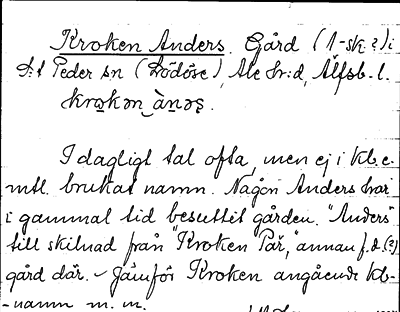 Kroken Anders. Gård (1-sk.?) i
S:t Peder sn (Lödöse), Ale hr:d, Älfsb. l.
krωkən ànəş.
I dagligt tal ofta, men ej i kb. e.
mtl. brukat namn. Någon Anders har
i gammal tid besuttit gården. "Anders"
till skilnad från "Kroken Pär," annan f.d.(?)
gård där. - Jämför Kroken angående kb-
-namn m. m.